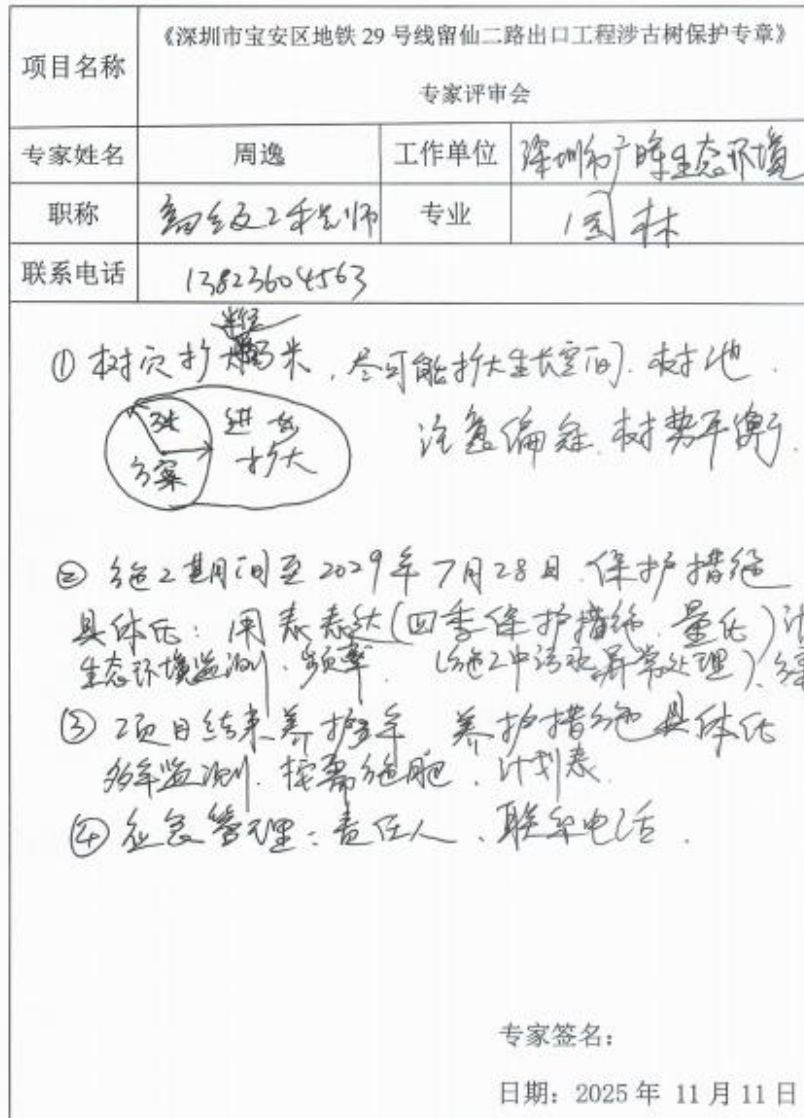 项目名称
《深圳市宝安区地铁 29 号线留仙二路出口工程涉古树保护专章》
专家评审会
专家姓名 周逸 工作单位 深圳市广晖生态环境
职称 高级工程师 专业 园林
联系电话 13823604563
半径
① 树穴扩 米，尽可能扩大生长空间．树池．
方案 进一步扩大
注意偏冠．树势平衡．
② 施工期间至 2029年 7月28日．保护措施
具体化：用表表达(四季保护措施．量化)
生态环境监测．频率．(施工中污染异常处理)．
③ 项目结束养护 年 养护措施具体化
多年监测．按需施肥．计划表．
④ 应急管理：责任人．联系电话．
专家签名：
日期：2025 年 11 月 11 日